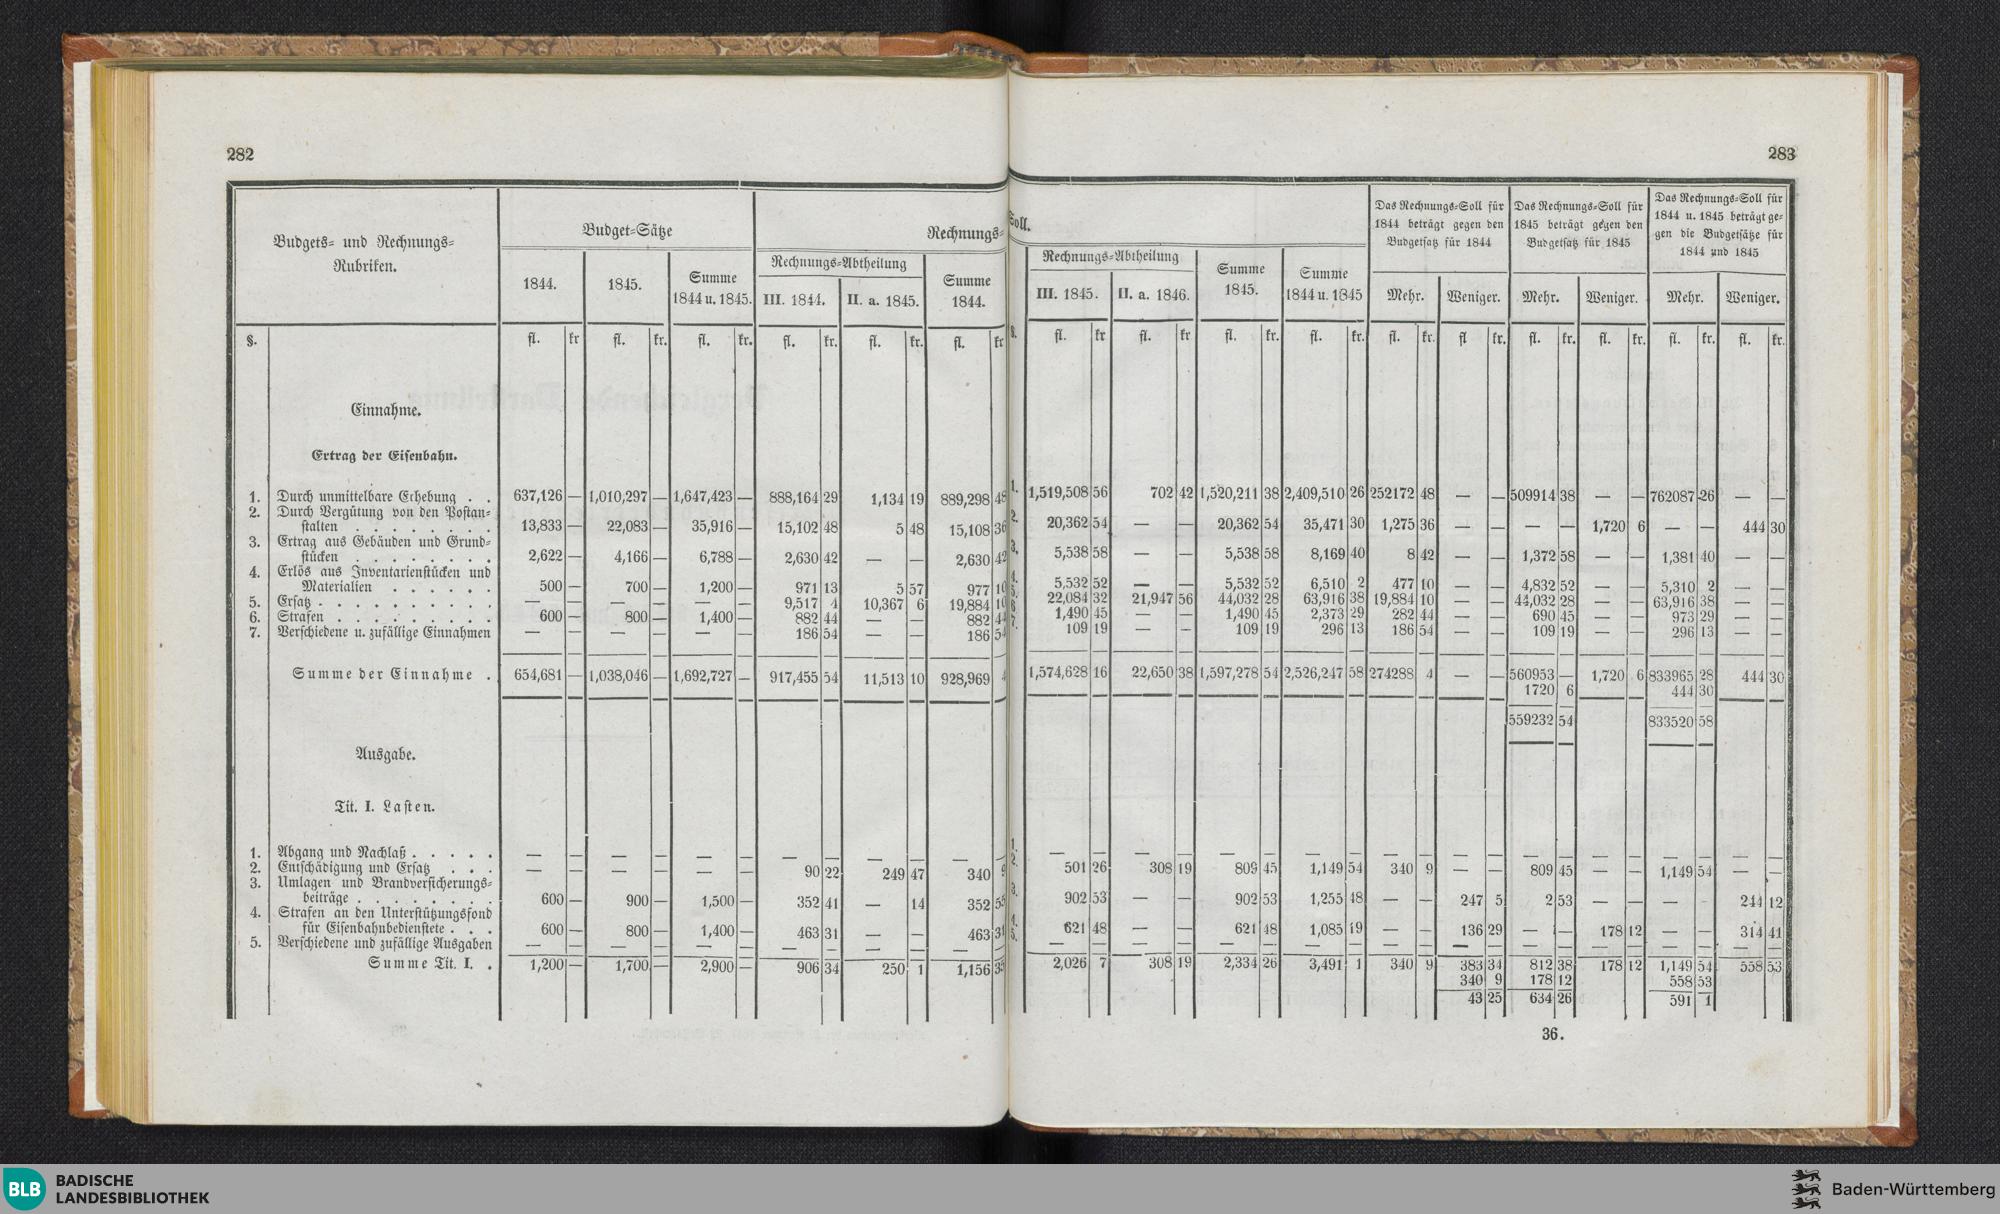 282
Budgets- und Rechnungs-
Rubriken.
Budget-Sätze
Rechnungs-
1844.
1845.
Summe
1844 u. 1845.
Rechnungs-Abtheilung
III. 1844.
II. a. 1845.
Summe
1844.
§.
fl. kr fl. kr. fl. kr. fl. kr. fl. kr. fl. kr
Einnahme.
Ertrag der Eisenbahn.
1. Durch unmittelbare Erhebung . . 637,126 — 1,010,297 — 1,647,423 — 888,164 29 1,134 19 889,298 48
2. Durch Vergütung von den Postan-
stalten . . . . . . . . 13,833 — 22,083 — 35,916 — 15,102 48 5 48 15,108 36
3. Ertrag aus Gebäuden und Grund-
stücken . . . . . . . . 2,622 — 4,166 — 6,788 — 2,630 42 — — 2,630 42
4. Erlös aus Inventarienstücken und
Materialien . . . . . . 500 — 700 — 1,200 — 971 13 5 57 977 10
5. Ersatz . . . . . . . . . . — — — — — — 9,517 4 10,367 6 19,884 10
6. Strafen . . . . . . . . . 600 — 800 — 1,400 — 882 44 — — 882 44
7. Verschiedene u. zufällige Einnahmen — — — — — — 186 54 — — 186 54
Summe der Einnahme . 654,681 — 1,038,046 — 1,692,727 — 917,455 54 11,513 10 928,969 4
Ausgabe.
Tit. I. Lasten.
1. Abgang und Nachlaß . . . . . — — — — — — — — — — — —
2. Entschädigung und Ersatz . . . — — — — — — 90 22 249 47 340 9
3. Umlagen und Brandversicherungs-
beiträge . . . . . . . . 600 — 900 — 1,500 — 352 41 — 14 352 55
4. Strafen an den Unterstützungsfond
für Eisenbahnbedienstete . . . 600 — 800 — 1,400 — 463 31 — — 463 31
5. Verschiedene und zufällige Ausgaben — — — — — — — — — — — —
Summe Tit. I. . 1,200 — 1,700 — 2,900 — 906 34 250 1 1,156 35
283
Soll.
Rechnungs-Abtheilung
III. 1845.
II. a. 1846.
Summe
1845.
Summe
1844 u. 1845
Das Rechnungs-Soll für
1844 beträgt gegen den
Budgetsatz für 1844
Das Rechnungs-Soll für
1845 beträgt gegen den
Budgetsatz für 1845
Das Rechnungs-Soll für
1844 u. 1845 beträgt ge-
gen die Budgetsätze für
1844 und 1845
Mehr. Weniger. Mehr. Weniger. Mehr. Weniger.
§. fl. kr fl. kr fl. kr. fl. kr. fl. kr. fl kr. fl. kr. fl. kr. fl. kr. fl. kr.
1. 1,519,508 56 702 42 1,520,211 38 2,409,510 26 252172 48 — — 509914 38 — — 762087 26 — —
2. 20,362 54 — — 20,362 54 35,471 30 1,275 36 — — — — 1,720 6 — — 444 30
3. 5,538 58 — — 5,538 58 8,169 40 8 42 — — 1,372 58 — — 1,381 40 — —
4. 5,532 52 — — 5,532 52 6,510 2 477 10 — — 4,832 52 — — 5,310 2 — —
5. 22,084 32 21,947 56 44,032 28 63,916 38 19,884 10 — — 44,032 28 — — 63,916 38 — —
6. 1,490 45 — — 1,490 45 2,373 29 282 44 — — 690 45 — — 973 29 — —
7. 109 19 — — 109 19 296 13 186 54 — — 109 19 — — 296 13 — —
1,574,628 16 22,650 38 1,597,278 54 2,526,247 58 274288 4 — — 560953 — 1,720 6 833965 28 444 30
1720 6 444 30
559232 54 833520 58
1. — — — — — — — — — — — — — — — — — — — —
2. 501 26 308 19 809 45 1,149 54 340 9 — — 809 45 — — 1,149 54 — —
3. 902 53 — — 902 53 1,255 48 — — 247 5 2 53 — — — — 244 12
4. 621 48 — — 621 48 1,085 19 — — 136 29 — — 178 12 — — 314 41
5. — — — — — — — — — — — — — — — — — — — —
2,026 7 308 19 2,334 26 3,491 1 340 9 383 34 812 38 178 12 1,149 54 558 53
340 9 178 12 558 53
43 25 634 26 591 1
36.
BLB
BADISCHE
LANDESBIBLIOTHEK
Baden-Württemberg